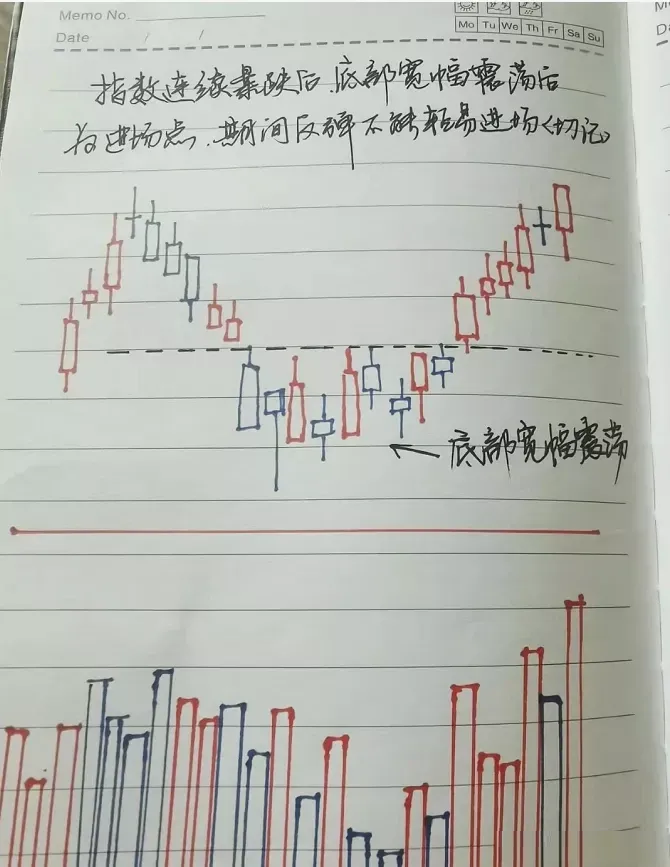 Memo No.
Mo Tu We Th Fr Sa Su
Date / /
指数连续暴跌后、底部宽幅震荡后
为进场点、期间反弹不能轻易进场(切记)
底部宽幅震荡
M
Da